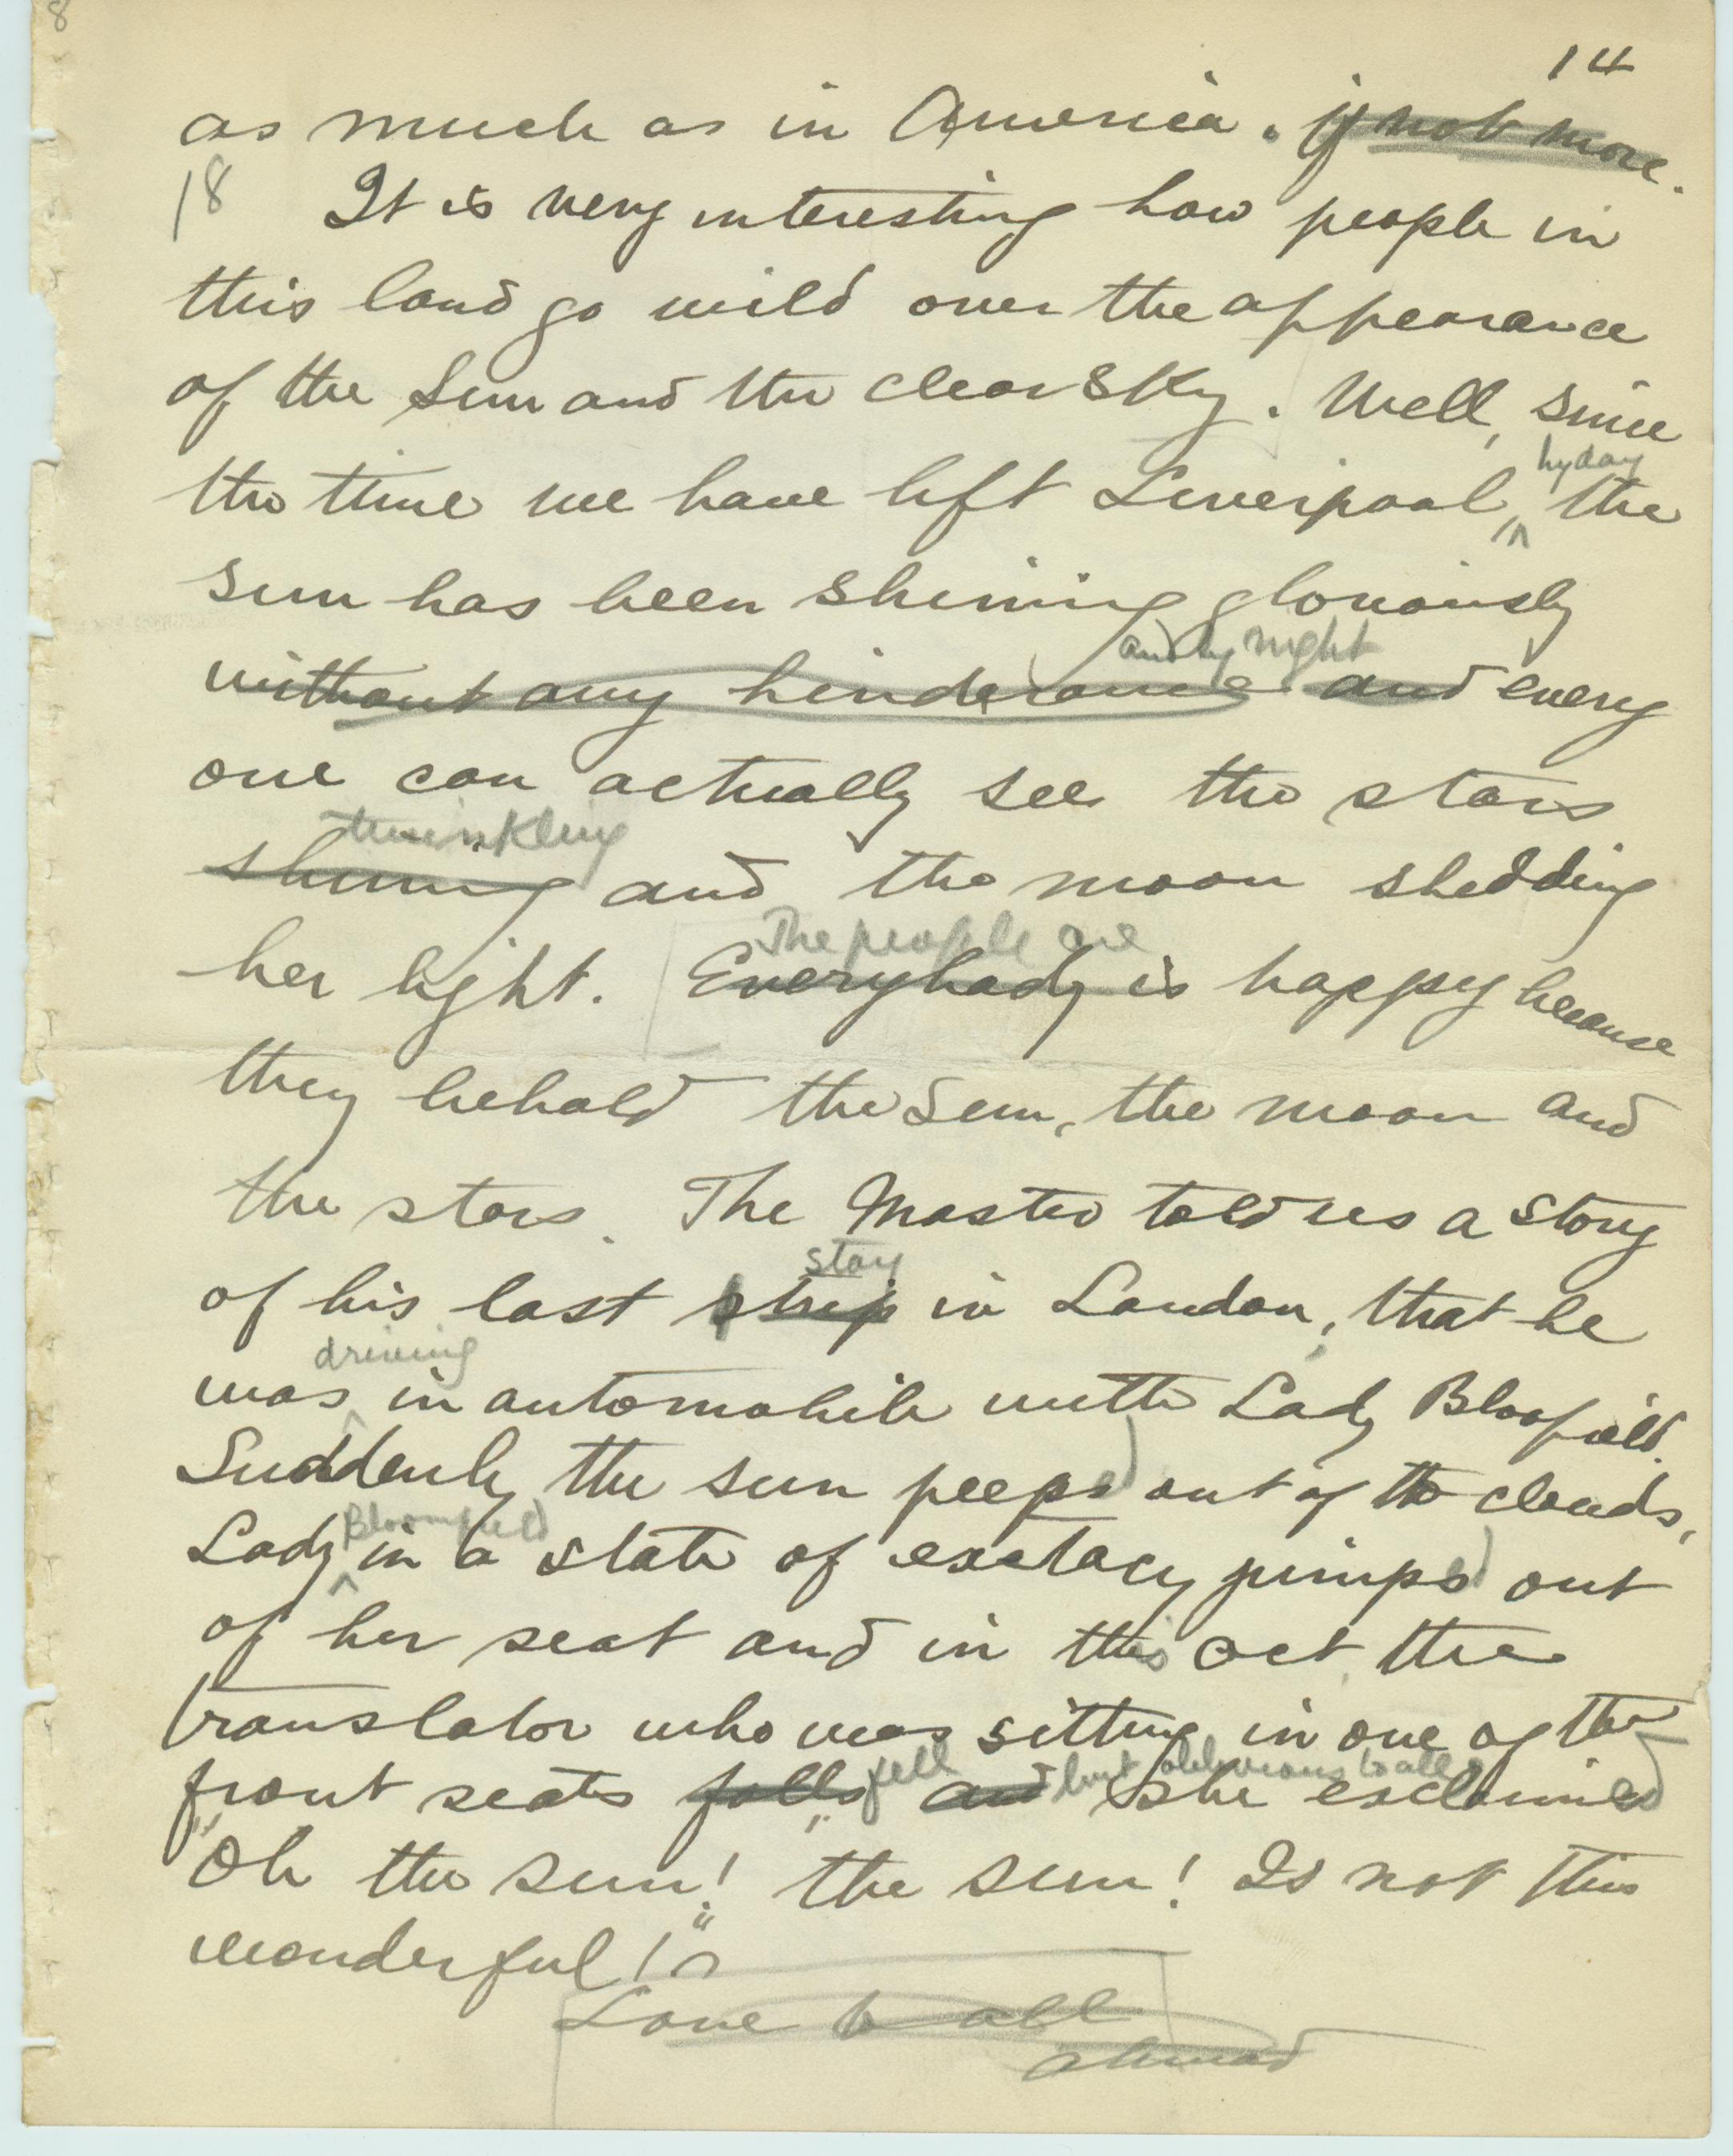 8
14
as much as in America. if not more.
18 It is very interesting how people in
this land go wild over the appearance
of the Sun and the clear sky. Well, since
by day
the time we have left Liverpool, the
sun has been shining gloriously
and by night
without any hinderance and every
one can actually see the stars
twinkling
shining and the moon shedding
The people are
her light. Everybody is happy because
they behold the Sun, the moon and
the stars. The Master told us a story
stay
of his last trip in London, that he
driving
was in automobile with Lady Bloofield.
Suddenly the sun peeped out of the clouds,
Bloomfield
Lady in a state of exctacy jumped out
of her seat and in this act the
translator who was sitting in one of the
fell but oblivious to all
front seats falls and she exclaimed
"Oh the sun! the sun! Is not this
wonderful!"
Love to all
Ahmad